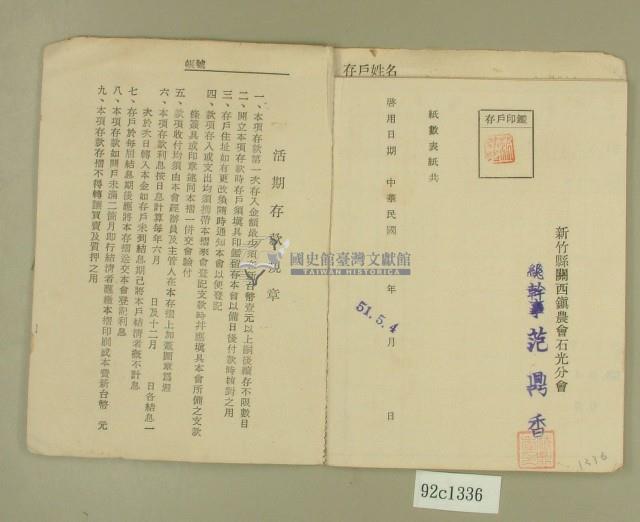 存戶姓名
存戶印鑑
新竹縣關西鎮農會石光分會
總幹事 范鼎香
紙數表紙共
啓用日期 中華民國 年 月 日
51.5.4
1336
帳號
活期存款規章
一、本項存款第一次存入金額最少須新台幣壹元以上嗣後續存不限數目
二、開立本項存款時存戶須填具印鑑留存本會以備日後付款時核對之用
三、存戶住址如有更改須隨時通知本會以便登記
四、款項存入或支出均須攜帶本摺來會登記支款時并應填具本會所備之支款
條簽具或印章連同本摺一併交會驗付
五、款項收付均須由本會經辦員及主管人在本存摺上加蓋圖章爲憑
六、本項存款利息按日息計算每年六月 日及十二月 日各結息一
次於次日轉入本金如存戶未到結息期已將本戶結清者概不計息
七、存戶於每屆結息期後應將本存摺送交本會登記利息
八、本項存款如開戶未滿二箇月即行結清者應繳本摺印刷成本費新台幣 元
九、本項存款存摺不得轉讓買賣及質押之用
國史館臺灣文獻館
TAIWAN HISTORICA
92c1336